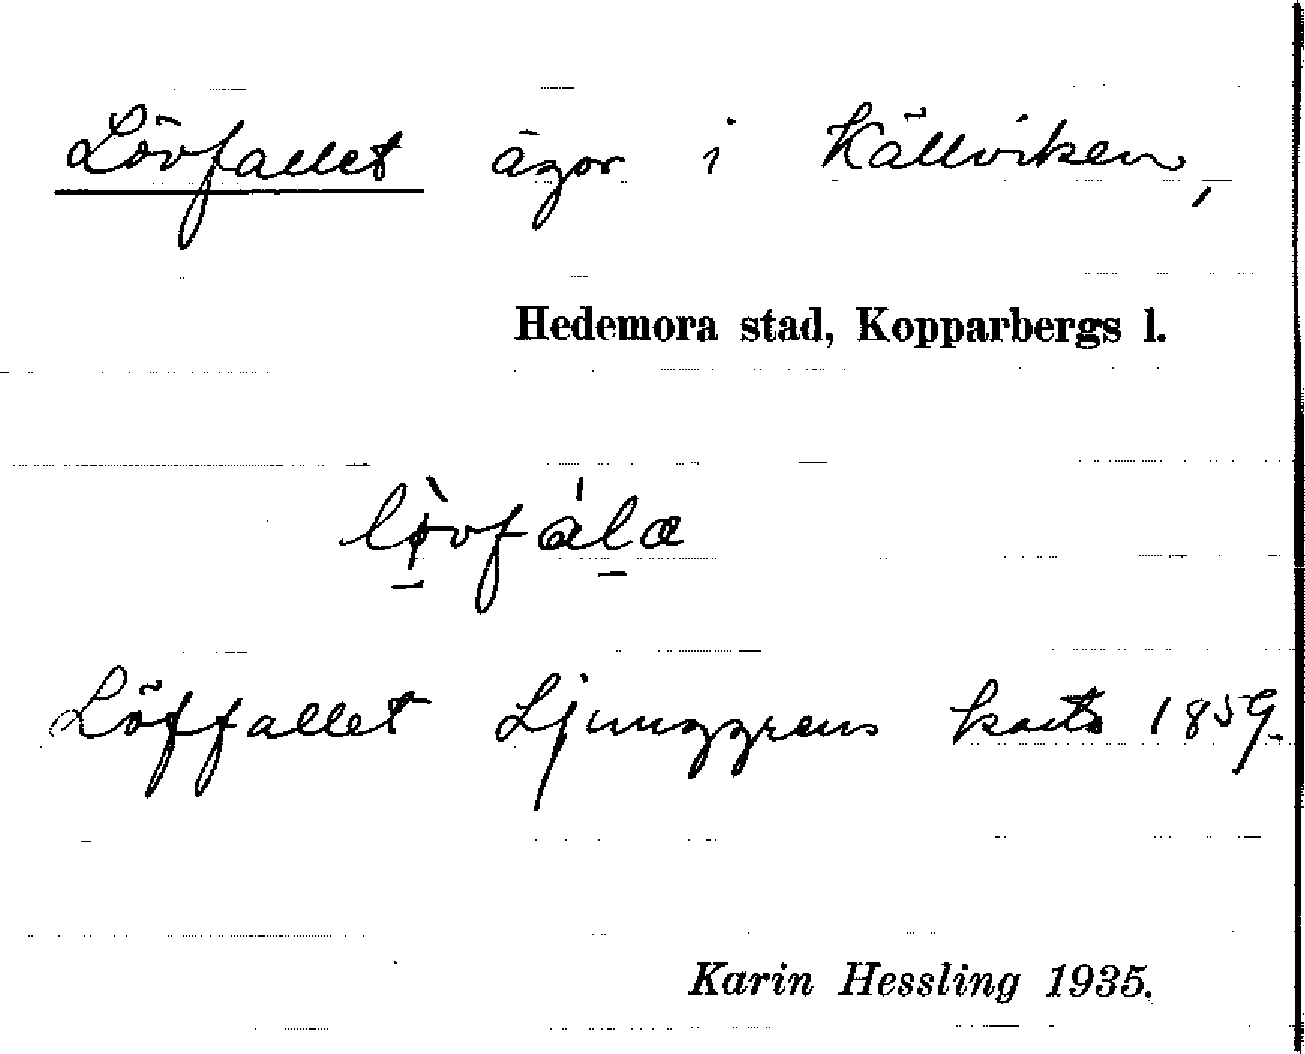 Lövfallet ägor i Källviken,
Hedemora stad, Kopparbergs l.
lø̀vfála
Löffallet Ljunggrens karta 1859.
Karin Hessling 1935.